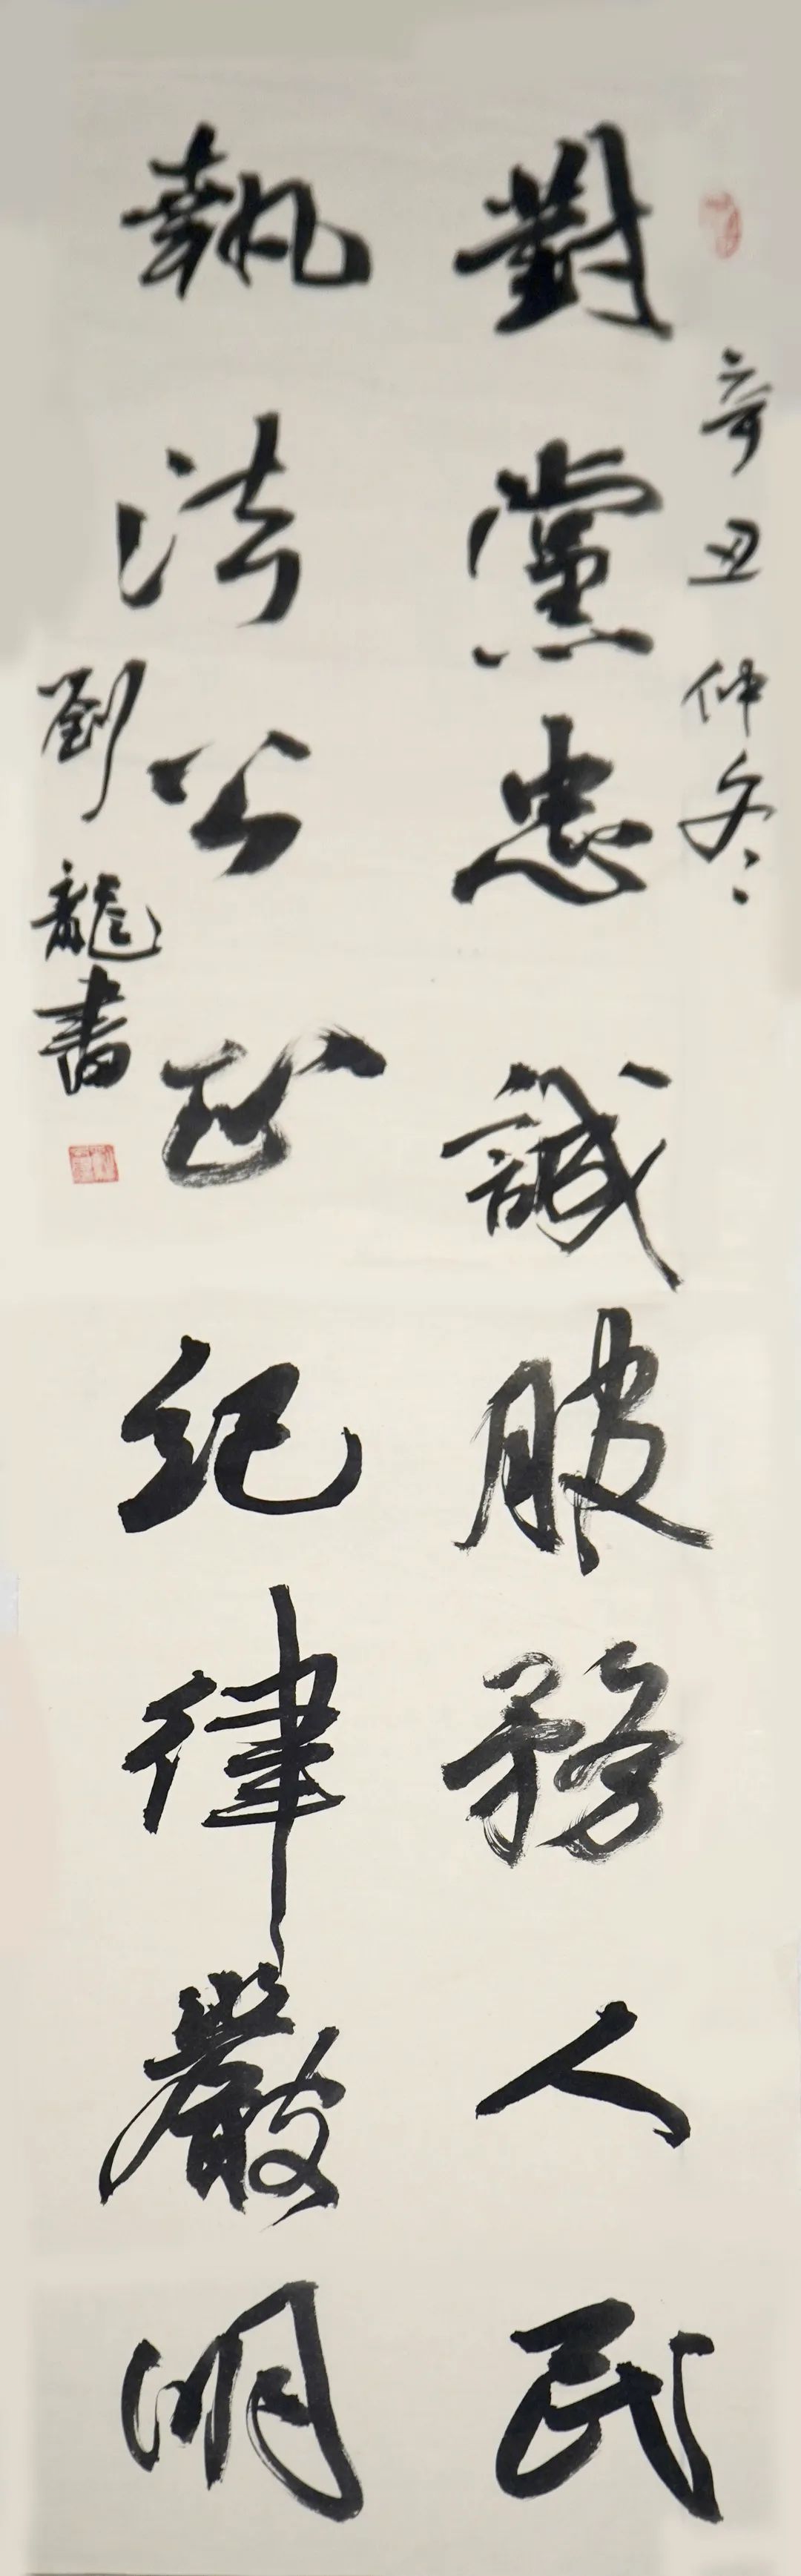 辛丑仲冬
對黨忠誠服務人民
執法公正紀律嚴明
劉龍書